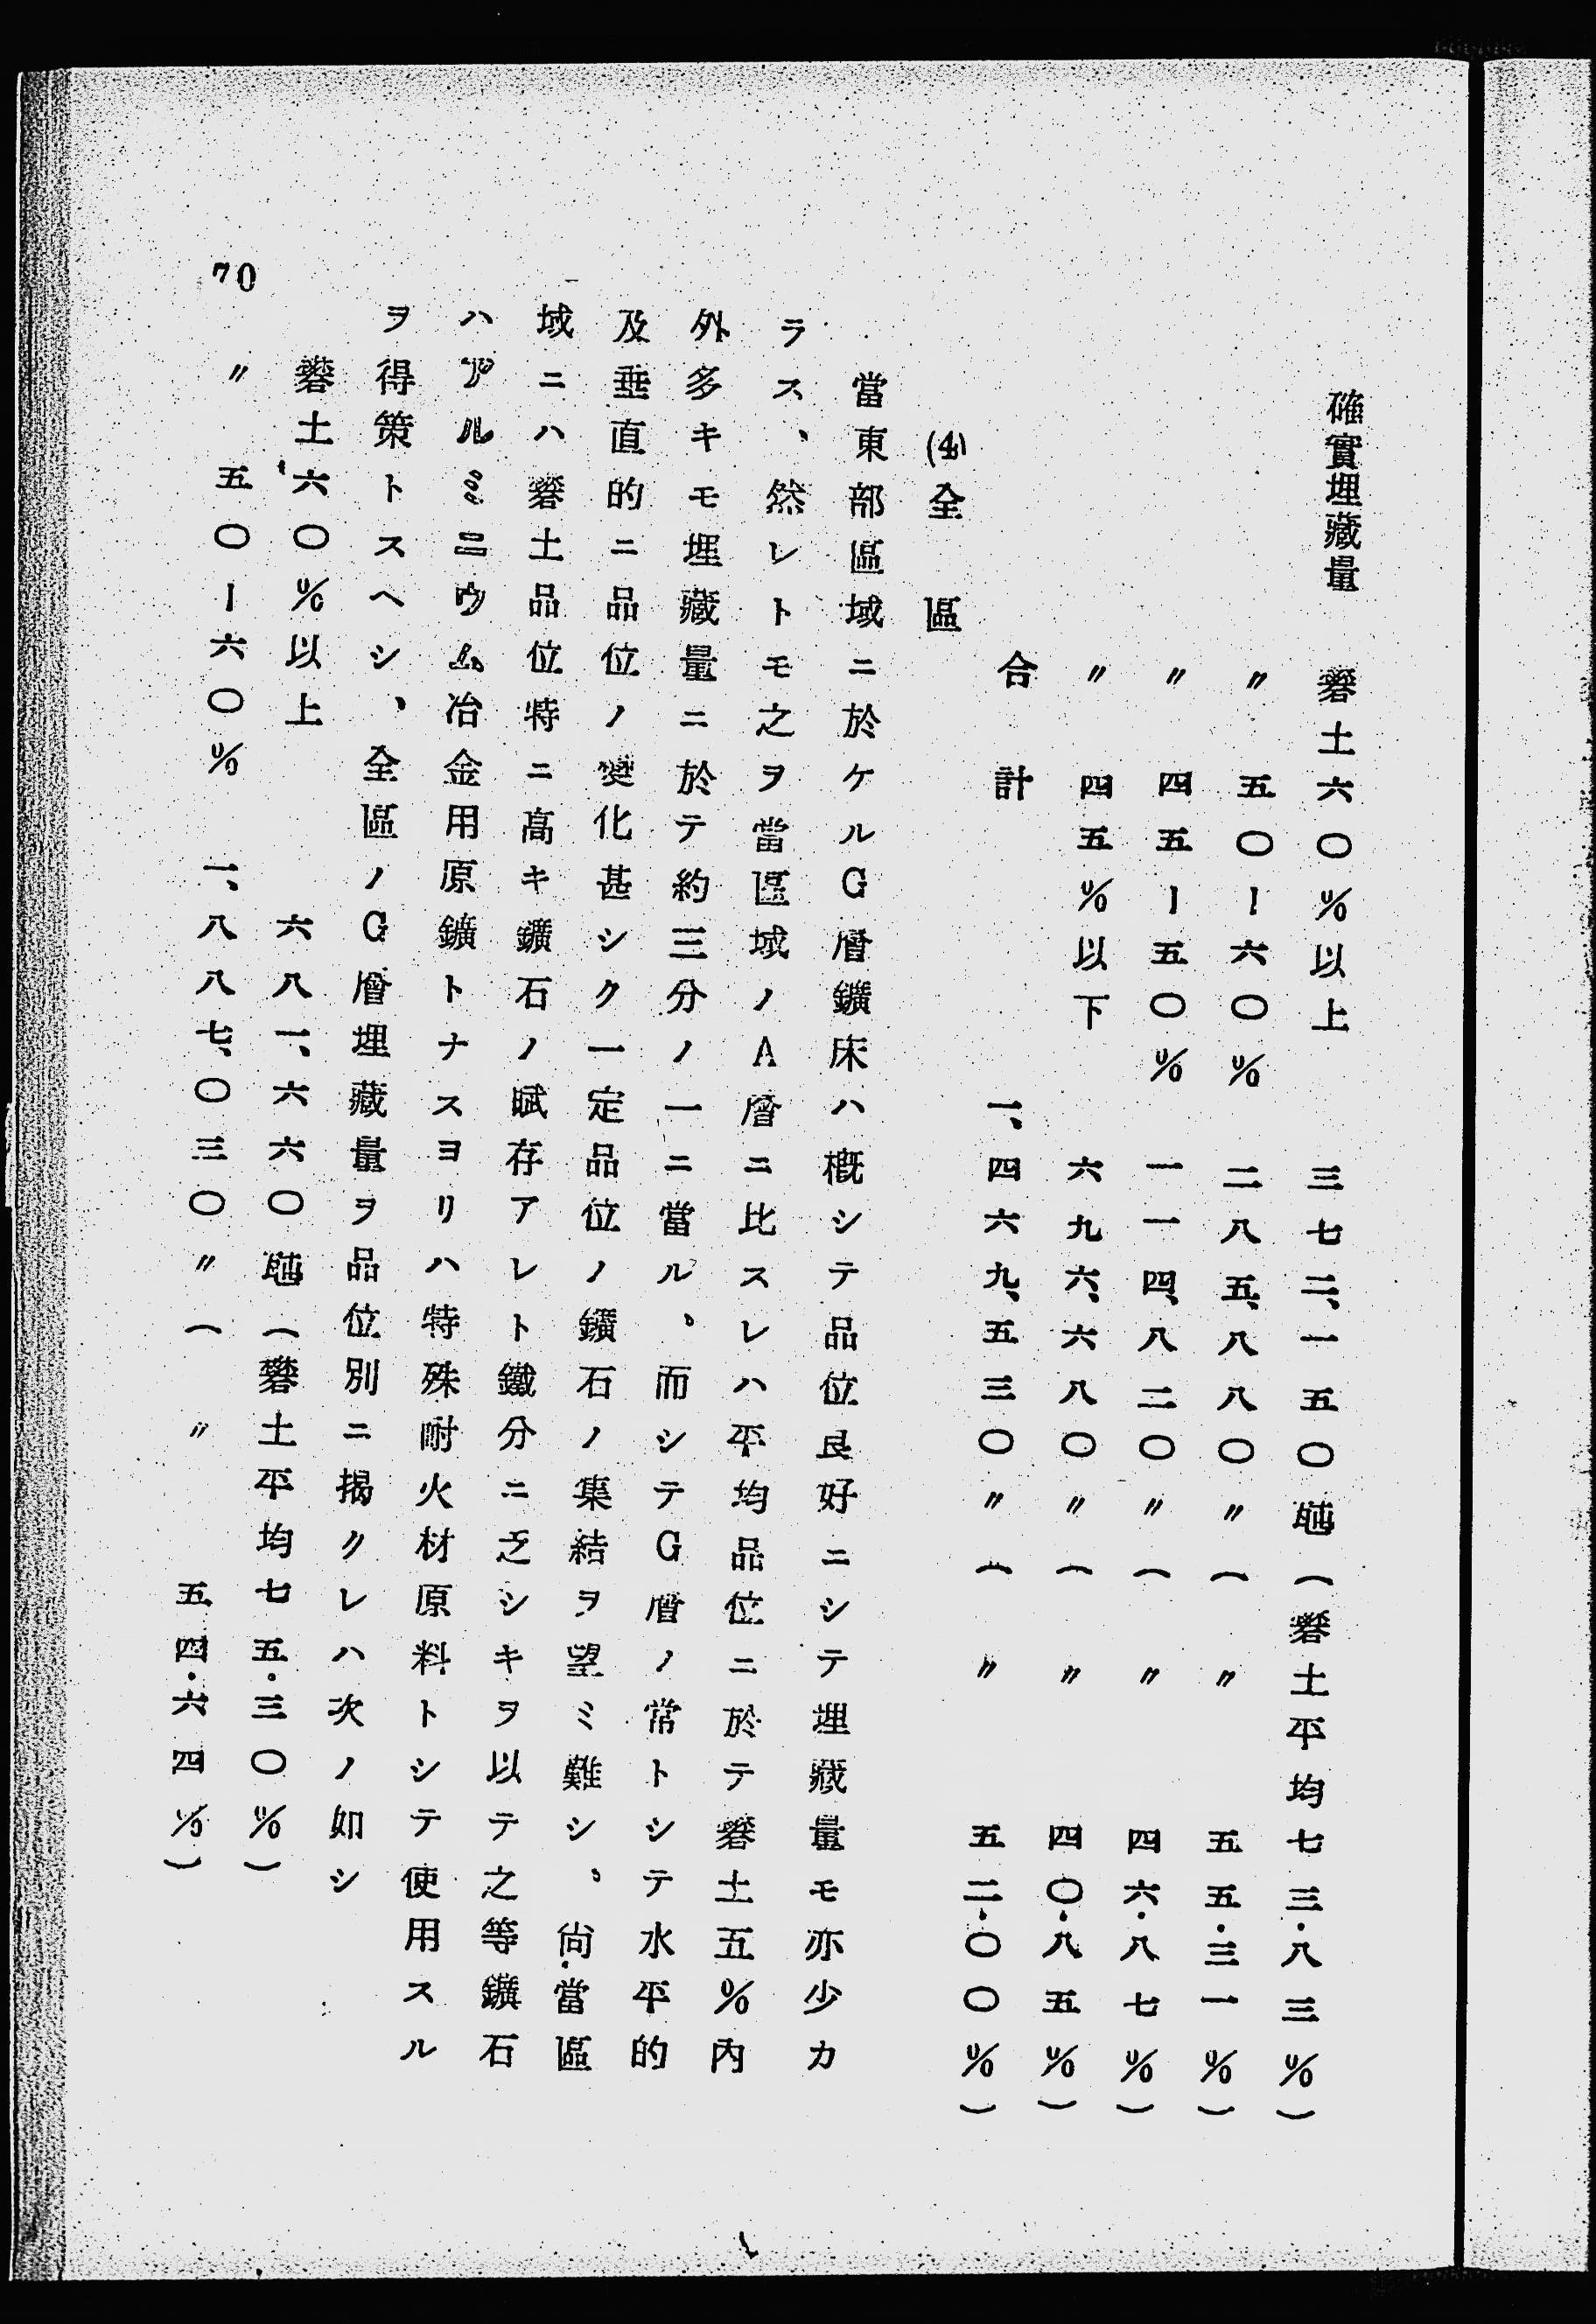 確實埋藏量　礬土六〇%以上　三七二、一五〇瓲（礬土平均七三・八三%）
〃　五〇ー六〇%　二八五、八八〇〃（〃　五五・三一%）
〃　四五ー五〇%　一一四、八二〇〃（〃　四六・八七%）
〃　四五%以下　六九六、六八〇〃（〃　四〇・八五%）
合計　一、四六九、五三〇〃（〃　五二・〇〇%）
(4)全區
當東部區域ニ於ケルG層鑛床ハ概シテ品位良好ニシテ埋藏量モ亦少カ
ラス、然レトモ之ヲ當區域ノA層ニ比スレハ平均品位ニ於テ礬土五%內
外多キモ埋藏量ニ於テ約三分ノ一ニ當ル、而シテG層ノ常トシテ水平的
及垂直的ニ品位ノ變化甚シク一定品位ノ鑛石ノ集結ヲ望ミ難シ、尙當區
域ニハ礬土品位特ニ高キ鑛石ノ賦存アレト鐵分ニ乏シキヲ以テ之等鑛石
ハアルミニウム冶金用原鑛トナスヨリハ特殊耐火材原料トシテ使用スル
ヲ得策トスヘシ、全區ノG層埋藏量ヲ品位別ニ揭クレハ次ノ如シ
礬土六〇%以上　六八一、六六〇瓲（礬土平均七五・三〇%）
〃　五〇ー六〇%　一、八八七、〇三〇〃（〃　五四・六四%）
70